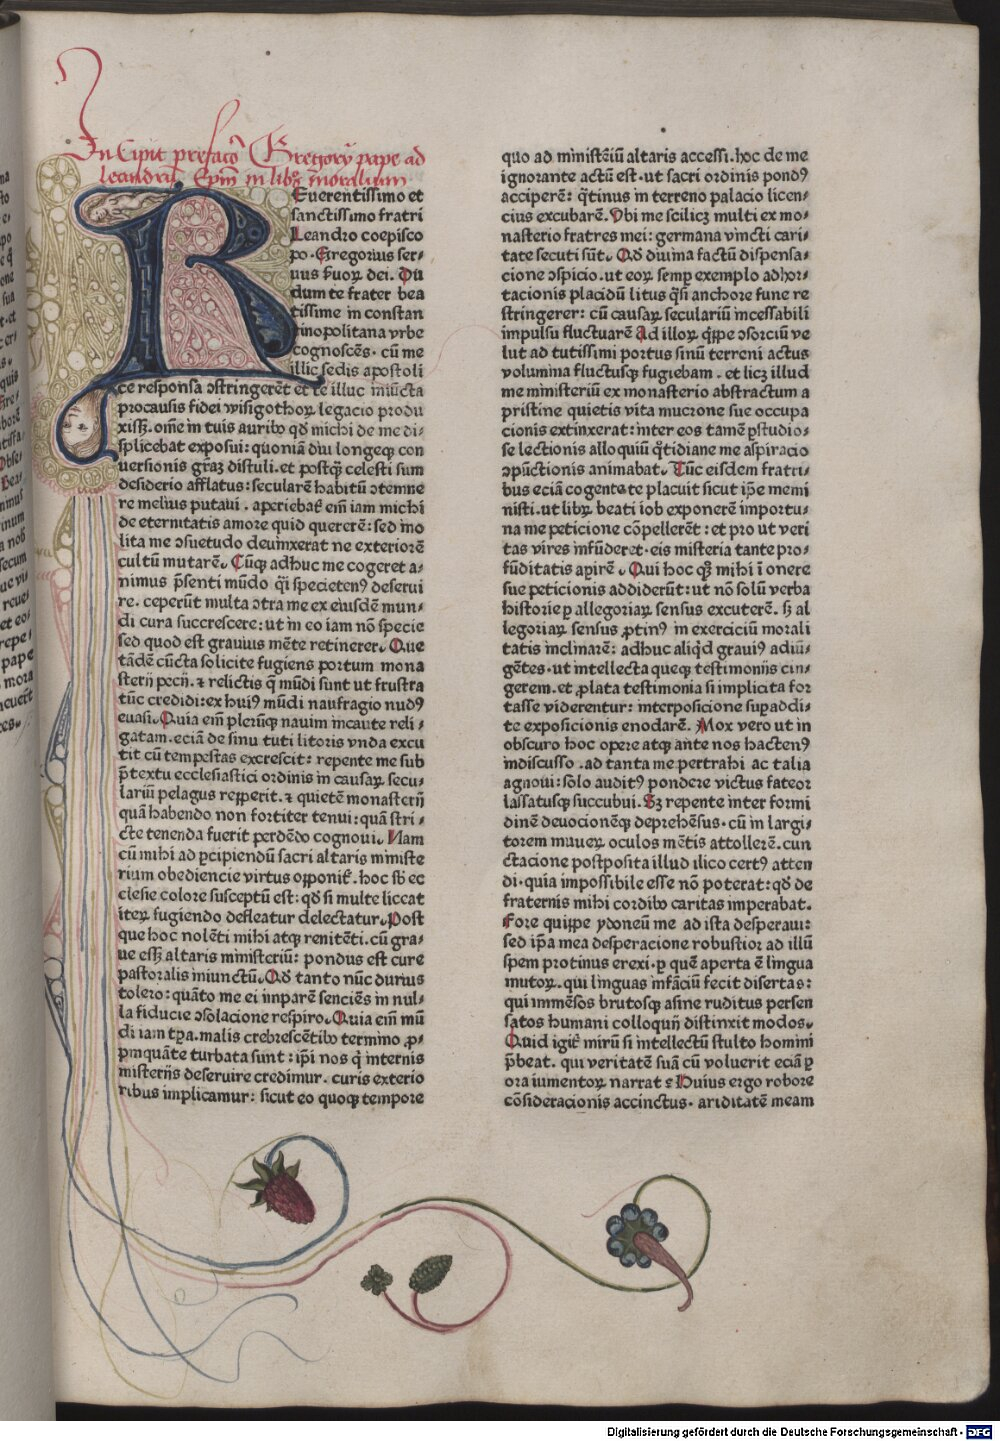 Incipit prefacō Gregorij pape ad
leandrū Epm̄ in libꝝ moralium
Reuerentissimo et
sanctissimo fratri
Leandro coepisco
po. Gregorius ser⸗
uus ẜuoꝝ dei. Du
dum te frater bea
tissime in constan
tinopolitana vrbe
cognoscēs. cū me
illic sedis apostoli
ce responsa ꝯstringerēt et te illuc iniūcta
procausis fidei wisigothoꝝ legacio produ
xissꝫ. om̄e in tuis aurib9 qd̄ michi de me di⸗
splicebat exposui: quoniā diu longeqꝫ con
uersionis gr̄aꝫ distuli. et postqꝫ celesti sum
desiderio afflatus: secularē habitū ꝯtemne
re melius putaui. aperiebat̄ em̄ iam michi
de eternitatis amore quid quererē: sed ino
lita me ꝯsuetudo deuinxerat ne exteriorē
cultū mutarē. Cūqꝫ adhuc me cogeret a⸗
nimus p̄senti mūdo q̇i specieten9 deserui
re. ceperūt multa ꝯtra me ex eiusdē mun⸗
di cura succrescere: ut in eo iam nō specie
sed quod est grauius mēte retinerer. Que
tādē cūcta solicite fugiens portum mona
sterij pecij. ⁊ relictis q̄ mūdi sunt ut frustra
tūc credidi: ex hui9 mūdi naufragio nud9
euasi. Quia em̄ plerūqꝫ nauim incaute reli⸗
gatam. eciā de sinu tuti litoris vnda excu
tit cū tempestas excrescit: repente me sub
p̄textu ecclesiastici ordinis in causaꝝ secu⸗
lariū pelagus repperit. ⁊ quietē monasterij
quā habendo non fortiter tenui: quā stri⸗
cte tenenda fuerit perdēdo cognoui. Nam
cū mihi ad ꝑcipiendū sacri altaris ministe
rium obediencie virtus opponit̄. hoc sb̄ ec
clesie colore susceptū est: qd̄ si multe liccat
iteꝝ fugiendo defleatur delectatur. Post
que hoc nolēti mihi atqꝫ renitēti. cū gra⸗
ue essꝫ altaris ministeriū: pondus est cure
pastoralis iniunctū. Qd̄ tanto nūc durius
tolero: quāto me ei imparē senciēs in nul⸗
la fiducie ꝯsolacione respiro. Quia em̄ mū
di iam tp̄a. malis crebrescētib9 termino ꝓ⸗
pinquāte turbata sunt: ip̄i nos q̄ internis
misterijs deseruire credimur. curis exterio
ribus implicamur: sicut eo quoqꝫ tempore
quo ad ministēiū altaris accessi. hoc de me
ignorante actū est. ut sacri ordinis pond9
acciperē: q̇tinus in terreno palacio licen⸗
cius excubarē. Vbi me scilicꝫ multi ex mo⸗
nasterio fratres mei: germana vincti cari⸗
tate secuti sūt. Qd̄ diuina factū dispensa⸗
cione ꝯspicio. ut eoꝝ semꝑ exemplo adhor⸗
tacionis placidū litus q̄si anchore fune re
stringerer: cū causaꝝ seculariū incessabili
impulsu fluctuarē Ad illoꝝ q̇ppe ꝯsorciū ve
lut ad tutissimi portus sinū terreni actus
volumina fluctusqꝫ fugiebam. et licꝫ illud
me ministeriū ex monasterio abstractum a
pristine quietis vita mucrone sue occupa
cionis extinxerat: inter eos tamē ꝑstudio⸗
se lectionis alloquiū q̇tidiane me aspiracio
ꝯpūctionis animabat. Tūc eisdem fratri⸗
bus eciā cogente te placuit sicut ip̄e memi
nisti. ut libꝝ beati iob exponerē importu⸗
na me peticione cōpellerēt: et pro ut veri
tas vires infūderet. eis misteria tante pro⸗
fūditatis apirē. Qui hoc qꝫ mihi ī onere
sue peticionis addiderūt: ut nō solū verba
historie ꝑ allegoriaꝝ sensus excuterē. sꝫ al
legoriaꝝ sensus ꝓtin9 in exerciciū morali
tatis inclinarē: adhuc aliq̇d graui9 adiū⸗
gētes. ut intellecta queqꝫ testimonijs cin⸗
gerem. et ꝓlata testimonia si implicita for
tasse viderentur: interposicione suꝑaddi⸗
te exposicionis enodarē. Mox vero ut in
obscuro hoc opere atqꝫ ante nos hacten9
indiscusso. ad tanta me pertrahi ac talia
agnoui: solo audit9 pondere victus fateor
lassatusqꝫ succubui. Sꝫ repente inter formi
dinē deuocionēqꝫ deprehēsus. cū in largi⸗
torem muneꝝ oculos mētis attollerē. cun
ctacione postposita illud ilico cert9 atten
di. quia impossibile esse nō poterat: qd̄ de
fraternis mihi cordib9 caritas imperabat.
Fore quippe ydoneū me ad ista desperaui:
sed ip̄a mea desperacione robustior ad illū
spem protinus erexi. ꝑ quē aperta ē lingua
mutoꝝ. qui linguas infāciū fecit disertas:
qui immēsos brutosqꝫ asine ruditus persen
satos humani colloquij distinxit modos.
Quid igit̄ mirū si intellectū stulto homini
p̄beat. qui veritatē suā cū voluerit eciā ꝑ
ora iumentoꝝ narrat? Huius ergo robore
cōsideracionis accinctus. ariditatē meam
Digitalisierung gefördert durch die Deutsche Forschungsgemeinschaft - DFG